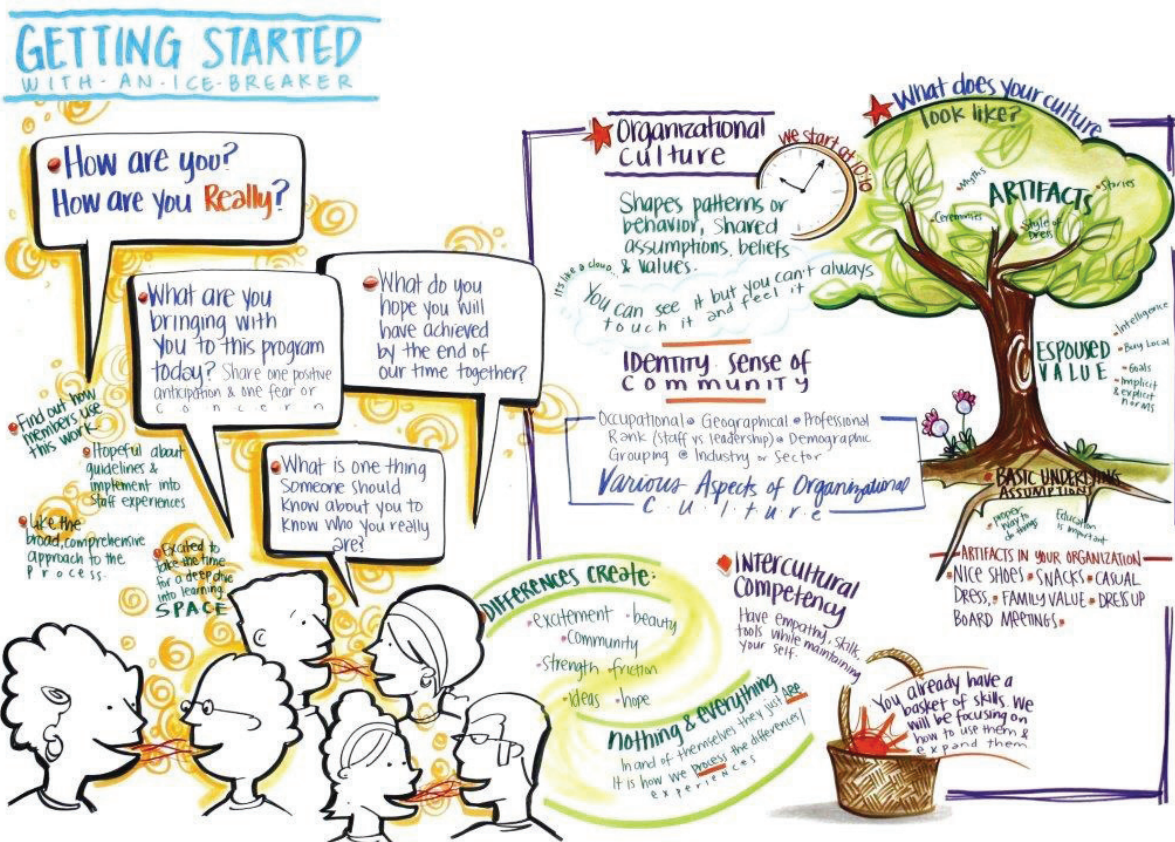 GETTING STARTED
WITH-AN-ICE-BREAKER
How are you?
How are you Really?
What are you
bringing with
you to this program
today? Share one positive
anticipation & one fear or
concern
What do you
hope you will
have achieved
by the end of
our time together?
What is one thing
Someone should
know about you to
know who you really
are?
Find out how
members use
this work
Hopeful about
guidelines &
implement into
staff experiences
Like the
broad, comprehensive
approach to the
process.
Excited to
take the time
for a deep dive
into learning
SPACE
Organizational
culture
We start at 10:10
Shapes patterns or
behavior, Shared
assumptions, beliefs
& values.
It's like a cloud...
You can see it but you can't always
touch it and feel it
IDENTITY Sense of
Community
Occupational • Geographical • Professional
Rank (staff vs leadership) • Demographic
Grouping • Industry or Sector
Various Aspects of Organizational
C·u·l·t·u·r·e
What does your culture
look like?
ARTIFACTS
Myths
Stories
Ceremonies
Style of
Dress
ESPOUSED
VALUE
Intelligence
Buy Local
Goals
Implicit
& explicit
norms
BASIC UNDERLYING
ASSUMPTIONS
proper
way to
do things
Education
is important
ARTIFACTS IN YOUR ORGANIZATION
NICE SHOES • SNACKS • CASUAL
DRESS, • FAMILY VALUE • DRESS UP
BOARD MEETINGS •
DIFFERENCES CREATE:
excitement • beauty
• community
• strength • friction
• ideas • hope
nothing & everything
In and of themselves they just ARE
It is how we process the differences/
experiences
INTERCULTURAL
Competency
Have empathy, skills,
tools while maintaining
your self.
You already have a
basket of skills. We
will be focusing on
how to use them &
expand them